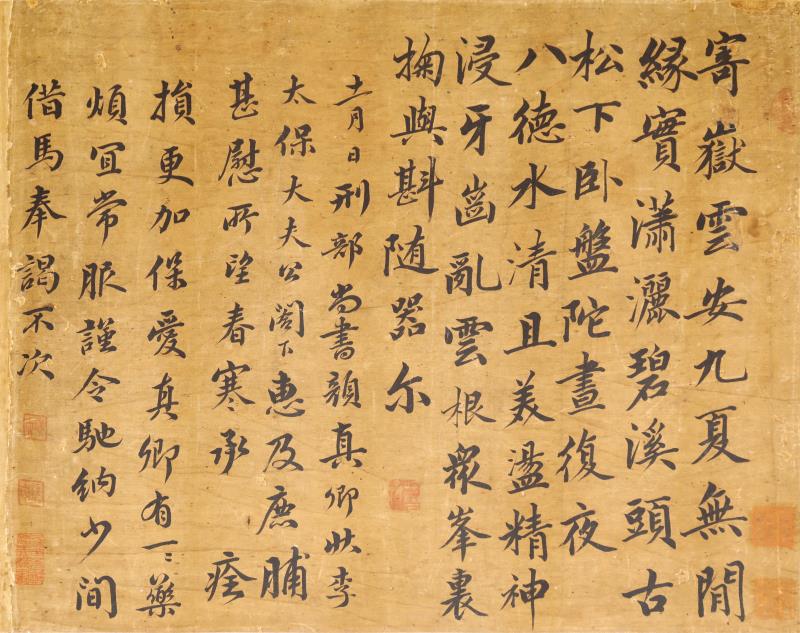 寄嶽雲安九夏無間
緣實瀟灑碧溪頭古
松下卧盤陀晝復夜
八德水清且美盪精神
浸牙齒亂雲根眾峯裏
掬與斟随器尔
十一月日刑部尚書顏真卿狀李
太保大夫公閤下惠及鹿脯
甚慰所望春寒承痊
損更加保愛真卿有一二藥
煩宜常服謹令馳納少間
借馬奉謁不次